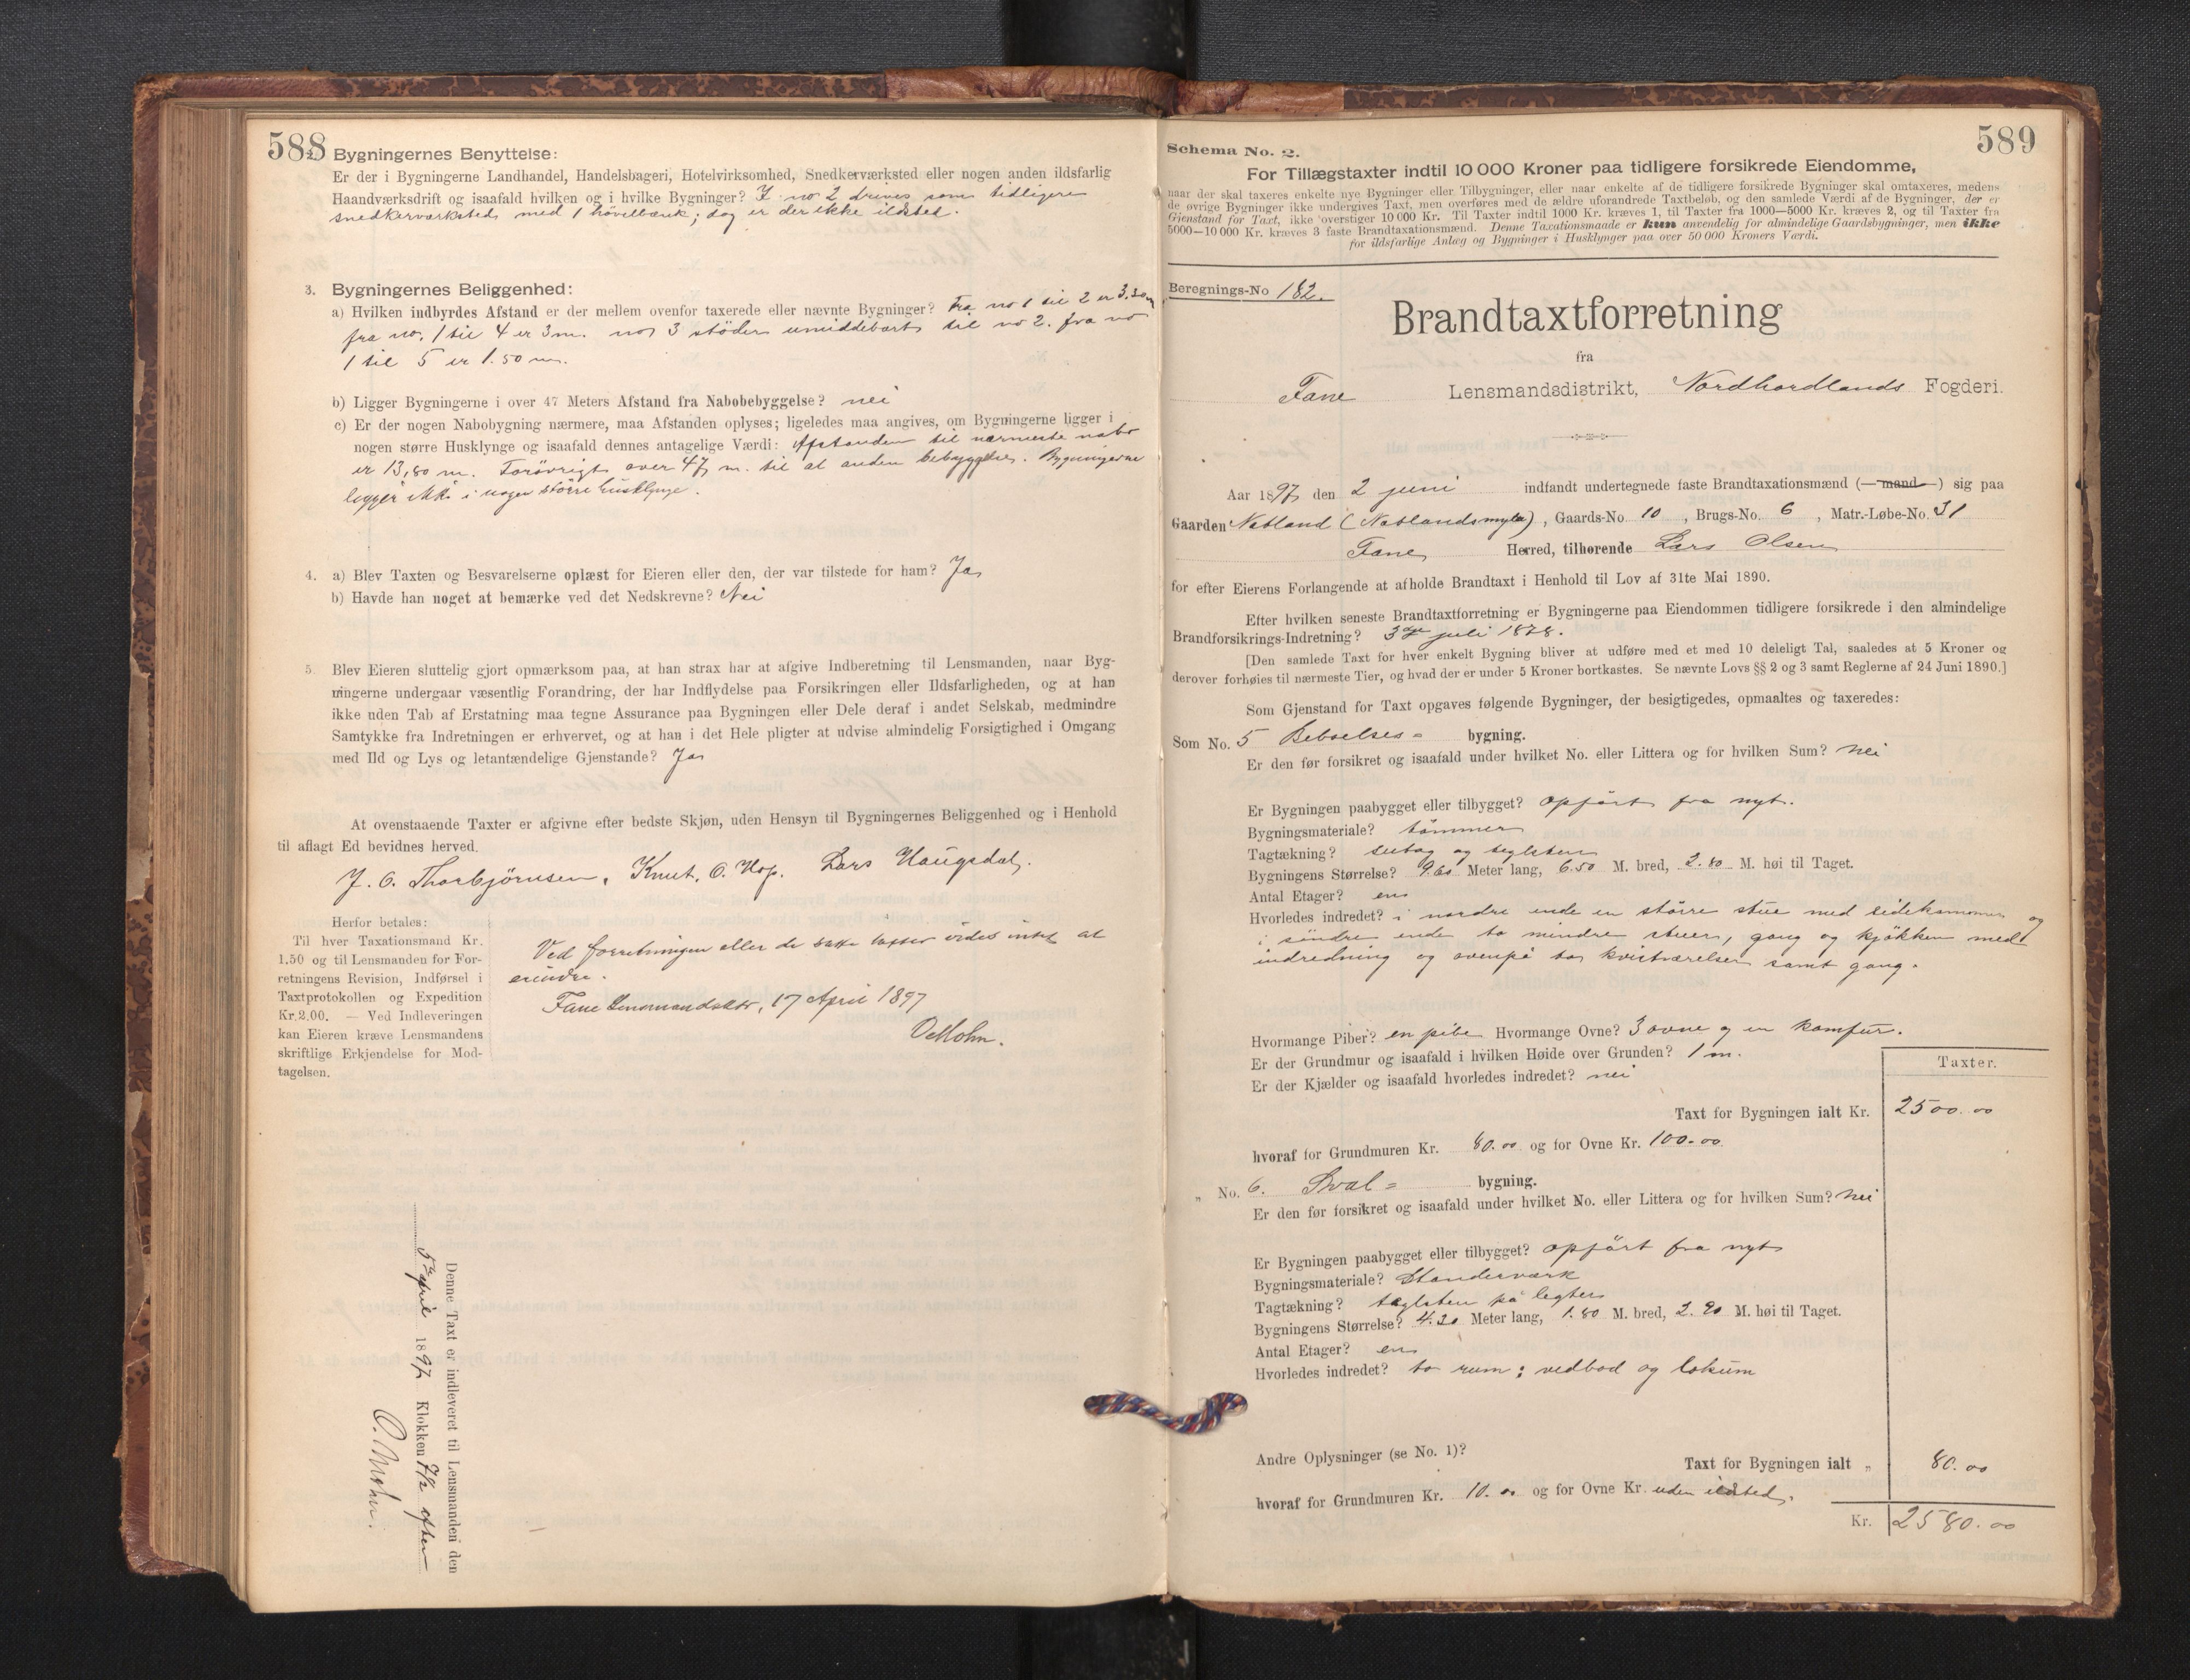 588
2. Bygningernes Benyttelse:
Er der i Bygningerne Landhandel, Handelsbageri, Hotelvirksomhed, Snedkerværksted eller nogen anden ildsfarlig
Haandværksdrift og isaafald hvilken og i hvilke Bygninger? I no 2 drives som tidligere
snedkerværksted med 1 hövelbænk; dog er der ikke ildsted.
3. Bygningernes Beliggenhed:
a) Hvilken indbyrdes Afstand er der mellem ovenfor taxerede eller nævnte Bygninger? Fra no 1 til 2 er 3,30 m
fra no. 1 til 4 er 3 m. no 3 stöder umiddebart til no 2. fra no
1 til 5 er 1.50 m.
b) Ligger Bygningerne i over 47 Meters Afstand fra Nabobebyggelse? nei
c) Er der nogen Nabobygning nærmere, maa Afstanden oplyses; ligeledes maa angives, om Bygningerne ligger i
nogen større Husklynge og isaafald dennes antagelige Værdi: Afstanden til nærmeste nabo
er 13,80 m. Forövrigt over 47 m. til al anden bebyggelse. Bygningerne
ligger ikke i nogen större husklynge.
4. a) Blev Taxten og Besvarelserne oplæst for Eieren eller den, der var tilstede for ham? Ja
b) Havde han noget at bemærke ved det Nedskrevne? Nei
5. Blev Eieren sluttelig gjort opmærksom paa, at han strax har at afgive Indberetning til Lensmanden, naar Byg-
ningerne undergaar væsentlig Forandring, der har Indflydelse paa Forsikringen eller Ildsfarligheden, og at han
ikke uden Tab af Erstatning maa tegne Assurance paa Bygningen eller Dele deraf i andet Selskab, medmindre
Samtykke fra Indretningen er erhvervet, og at han i det Hele pligter at udvise almindelig Forsigtighed i Omgang
med Ild og Lys og letantændelige Gjenstande? Ja
At ovenstaaende Taxter er afgivne efter bedste Skjøn, uden Hensyn til Bygningernes Beliggenhed og i Henhold
til aflagt Ed bevidnes herved.
J. O. Thorbjörnsen, Knut. O. Hop. Lars Haugsdal.
Herfor betales:
Til hver Taxationsmand Kr.
1.50 og til Lensmanden for For-
retningens Revision, Indførsel i
Taxtprotokollen og Expedition
Kr. 2.00. — Ved Indleveringen
kan Eieren kræve Lensmandens
skriftlige Erkjendelse for Mod-
tagelsen.
Ved forretningen eller de satte taxter vides intet at
erindre.
Fane Lensmandsktr, 17 April 1897
O Mohn.
Denne Taxt er indleveret til Lensmanden den
5te april 1897 Klokken 7½ efter
O. Mohn.
589
Schema No. 2.
For Tillægstaxter indtil 10 000 Kroner paa tidligere forsikrede Eiendomme,
naar der skal taxeres enkelte nye Bygninger eller Tilbygninger, eller naar enkelte af de tidligere forsikrede Bygninger skal omtaxeres, medens
de øvrige Bygninger ikke undergives Taxt, men overføres med de ældre uforandrede Taxtbeløb, og den samlede Værdi af de Bygninger, der er
Gjenstand for Taxt, ikke overstiger 10 000 Kr. Til Taxter indtil 1000 Kr. kræves 1, til Taxter fra 1000—5000 Kr. kræves 2, og til Taxter fra
5000—10 000 Kr. kræves 3 faste Brandtaxationsmænd. Denne Taxationsmaade er kun anvendelig for almindelige Gaardsbygninger, men ikke
for ildsfarlige Anlæg og Bygninger i Husklynger paa over 50 000 Kroners Værdi.
Beregnings-No 182.
Brandtaxtforretning
fra
Fane Lensmandsdistrikt, Nordhordlands Fogderi.
Aar 1897 den 2 juni indfandt undertegnede faste Brandtaxationsmænd (—mand—) sig paa
Gaarden Natland (Natlandsmyra), Gaards-No. 10, Brugs-No. 6, Matr.-Løbe-No. 31
Fane Herred, tilhørende Lars Olsen
for efter Eierens Forlangende at afholde Brandtaxt i Henhold til Lov af 31te Mai 1890.
Efter hvilken seneste Brandtaxtforretning er Bygningerne paa Eiendommen tidligere forsikrede i den almindelige
Brandforsikrings-Indretning? 3die juli 1878.
[Den samlede Taxt for hver enkelt Bygning bliver at udføre med et med 10 deleligt Tal, saaledes at 5 Kroner og
derover forhøies til nærmeste Tier, og hvad der er under 5 Kroner bortkastes. Se nævnte Lovs §§ 2 og 3 samt Reglerne af 24 Juni 1890.]
Som Gjenstand for Taxt opgaves følgende Bygninger, der besigtigedes, opmaaltes og taxeredes:
Som No. 5 Beboelses= bygning.
Er den før forsikret og isaafald under hvilket No. eller Littera og for hvilken Sum? nei
Er Bygningen paabygget eller tilbygget? opfört fra nyt.
Bygningsmateriale? tömmer
Tagtækning? sutag og teglsten
Bygningens Størrelse? 9.60 Meter lang, 6.50 M. bred, 2.80 M. høi til Taget.
Antal Etager? en
Hvorledes indredet? i nordre ende en större stue med sidekammer og
i söndre ende to mindre stuer, gang og kjökken med
indredning og ovenpå to kvistværelser samt gang.
Hvormange Piber? en pibe Hvormange Ovne? 3 ovne og en komfur.
Er der Grundmur og isaafald i hvilken Høide over Grunden? 1 m.
Er der Kjælder og isaafald hvorledes indredet? nei
Taxter.
Taxt for Bygningen ialt Kr. 2500.00
hvoraf for Grundmuren Kr. 80.00 og for Ovne Kr. 100.00
„ No. 6. Sval= bygning.
Er den før forsikret og isaafald under hvilket No. eller Littera og for hvilken Sum? nei
Er Bygningen paabygget eller tilbygget? opfört fra nyt
Bygningsmateriale? Standerværk
Tagtækning? teglsten på legter
Bygningens Størrelse? 4.20 Meter lang, 1.80 M. bred, 2.20 M. høi til Taget.
Antal Etager? en
Hvorledes indredet? to rum; vedbod og lokum
Andre Oplysninger (se No. 1)?
Taxt for Bygningen ialt „ 80.00
hvoraf for Grundmuren Kr. 10.00 og for Ovne Kr. uden ildsted.
Kr. 2580.00